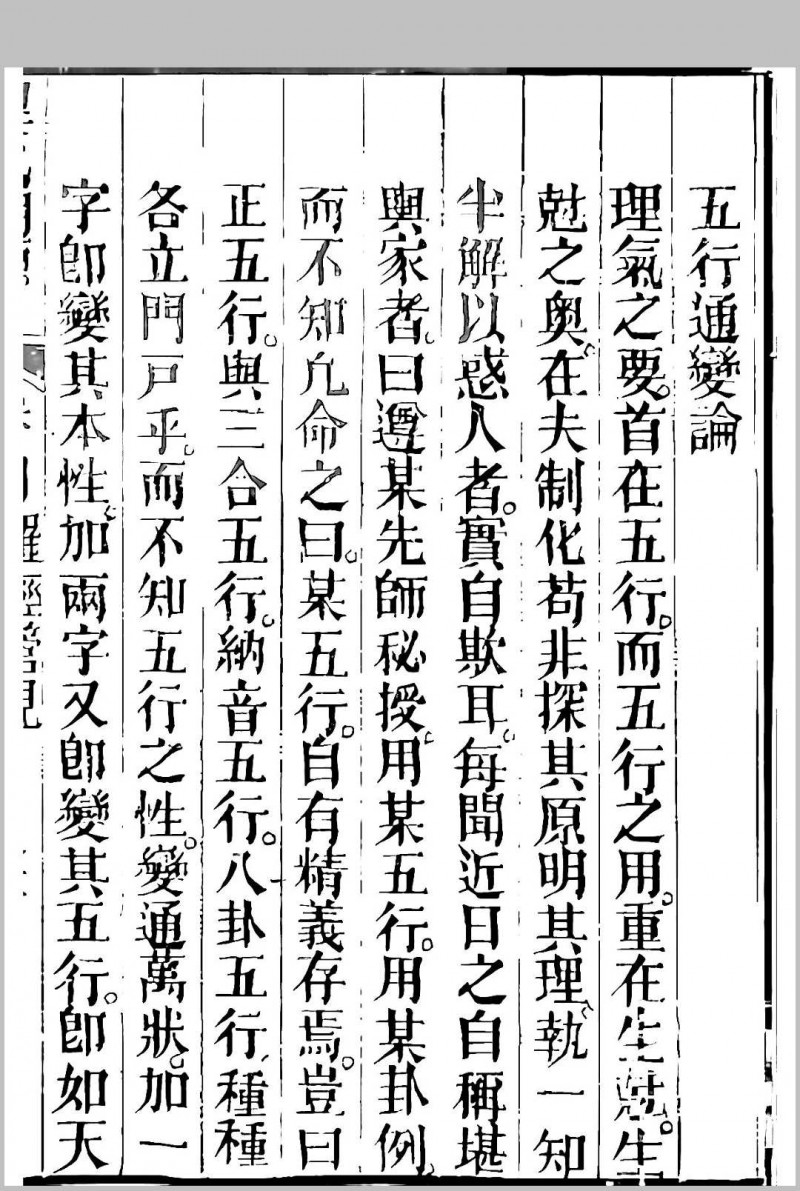 五行通變論
理氣之要。首在五行。而五行之用。重在生尅。生
尅之奥。在夫制化苟非探其原明其理、執一知
半解以惑人者。實自欺耳。每聞近日之自稱堪
輿家者。曰遵某先師秘授。用某五行。用某卦例。
而不知凢命之曰。某五行。自有精義存焉。豈曰
正五行。與三合五行。納音五行。八卦五行、種種
各立門戸乎。而不知五行之性。變通萬狀。加一
字卽變其本性。加兩字又卽變其五行。卽如天
羅經管見